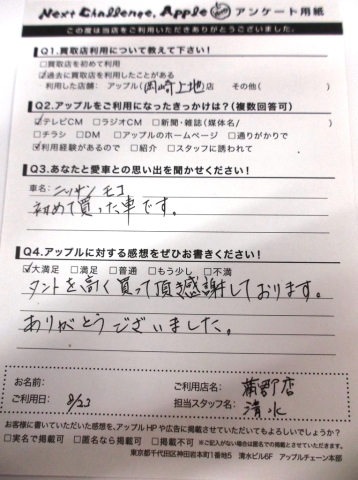 Next Challenge, Apple アンケート用紙
この度は当店をご利用いただきありがとうございました。
Q1.買取店利用について教えて下さい!
□買取店を初めて利用
☑過去に買取店を利用したことがある
利用した店舗: アップル(岡崎上地)店 その他( )
Q2.アップルをご利用になったきっかけは?(複数回答可)
☑テレビCM □ラジオCM □新聞・雑誌(媒体名/ )
□チラシ □DM □アップルのホームページ □通りがかりで
☑利用経験があるので □紹介 □スタッフに誘われて
Q3.あなたと愛車との思い出を聞かせください!
車名: ニッサン モコ
初めて買った車です。
Q4.アップルに対する感想をぜひお書きください!
☑大満足 □満足 □普通 □もう少し □不満
タントを高く買って頂き感謝しております。
ありがとうございました。
お名前:
ご利用店名: 蒲郡店
ご利用日: 8/23
担当スタッフ名: 清水
お客様に書いていただいた感想を、アップルHPや広告に掲載させていただいてもよろしいでしょうか?
□実名で掲載可 □匿名なら掲載可 □掲載不可 ※ご記入がない場合は匿名での掲載とさせていただきます。
東京都千代田区神田岩本町1番地5 清水ビル6F アップルチェーン本部